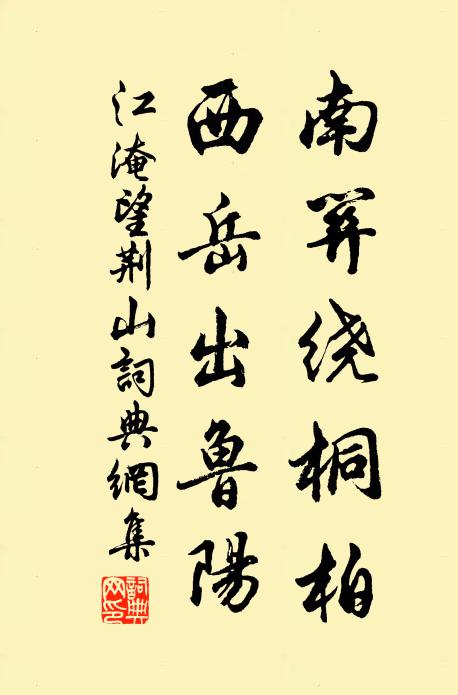 南關绕桐柏
西岳出鲁陽
江淹望荆山詞典網集
詞典
网印